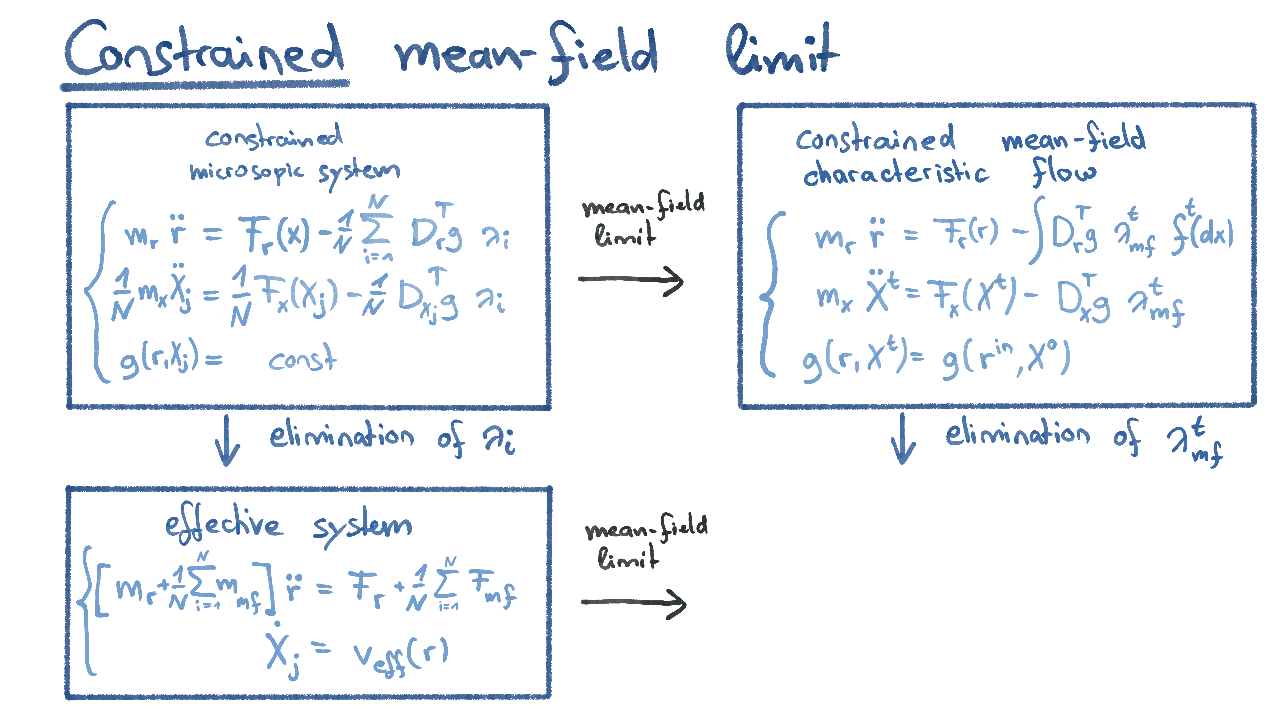 Constrained mean-field limit
constrained
microsopic system
m_r r̈ = F_r(x) - 1/N ∑_{i=1}^N D_r^T g λ_i
1/N m_x Ẍ_j = 1/N F_x(X_j) - 1/N D_{X_j}^T g λ_i
g(r,X_j) = const
mean-field
limit
constrained mean-field
characteristic flow
m_r r̈ = F_r(r) - ∫ D_r^T g λ_mf^t f^t(dx)
m_x Ẍ^t = F_x(X^t) - D_x^T g λ_mf^t
g(r, X^t) = g(r^in, X^0)
elimination of λ_i
elimination of λ_mf^t
effective system
[m_r + 1/N ∑_{i=1}^N m_mf] r̈ = F_r + 1/N ∑_{i=1}^N F_mf
Ẋ_j = v_eff(r)
mean-field
limit